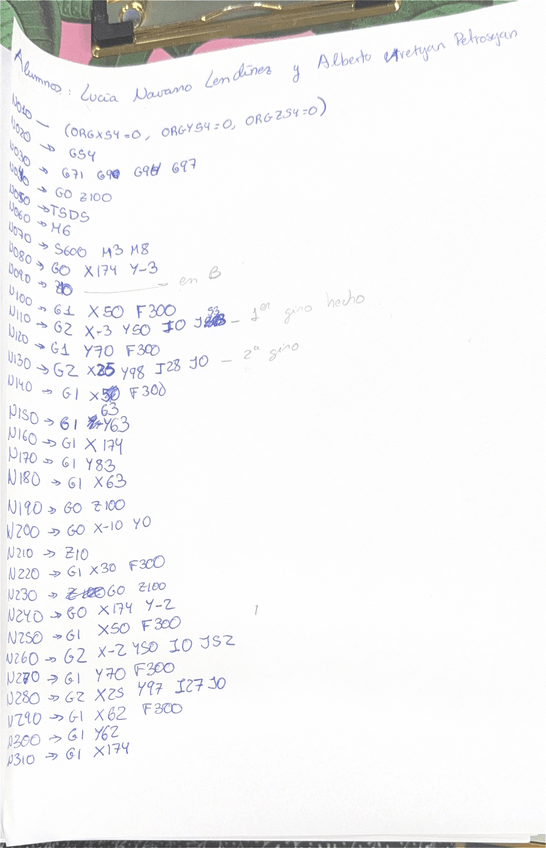 Alumnos: Lucía Navarro Lendínez y Alberto Aretyan Petrosyan
N010 — (ORGX54=0, ORGY54=0, ORGZ54=0)
N020 → G54
N030 → G71 G90 G94 G97
N040 → G0 Z100
N050 → T5D5
N060 → M6
N070 → S600 M3 M8
N080 → G0 X174 Y-3
N090 → — en B
N100 → G1 X50 F300
N110 → G2 X-3 Y50 I0 J53 — 1er giro hecho
N120 → G1 Y70 F300
N130 → G2 X25 Y98 I28 J0 — 2º giro
N140 → G1 X63 F300
N150 → G1 Y63
N160 → G1 X174
N170 → G1 Y83
N180 → G1 X63
N190 → G0 Z100
N200 → G0 X-10 Y0
N210 → Z10
N220 → G1 X30 F300
N230 → G0 Z100
N240 → G0 X174 Y-2
N250 → G1 X50 F300
N260 → G2 X-2 Y50 I0 J52
N270 → G1 Y70 F300
N280 → G2 X25 Y97 I27 J0
N290 → G1 X62 F300
N300 → G1 Y62
N310 → G1 X174